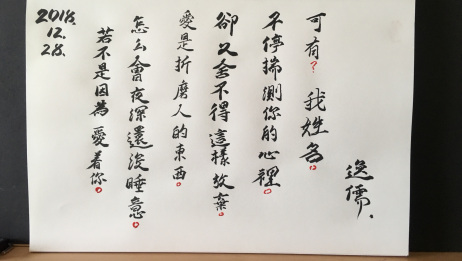 2018.
12.
28.
若不是因為愛着你。
怎么會夜深還沒睡意。
愛是折磨人的東西。
卻又舍不得這樣放棄。
不停揣測你的心裡。
可有？我姓名。
逸儒.